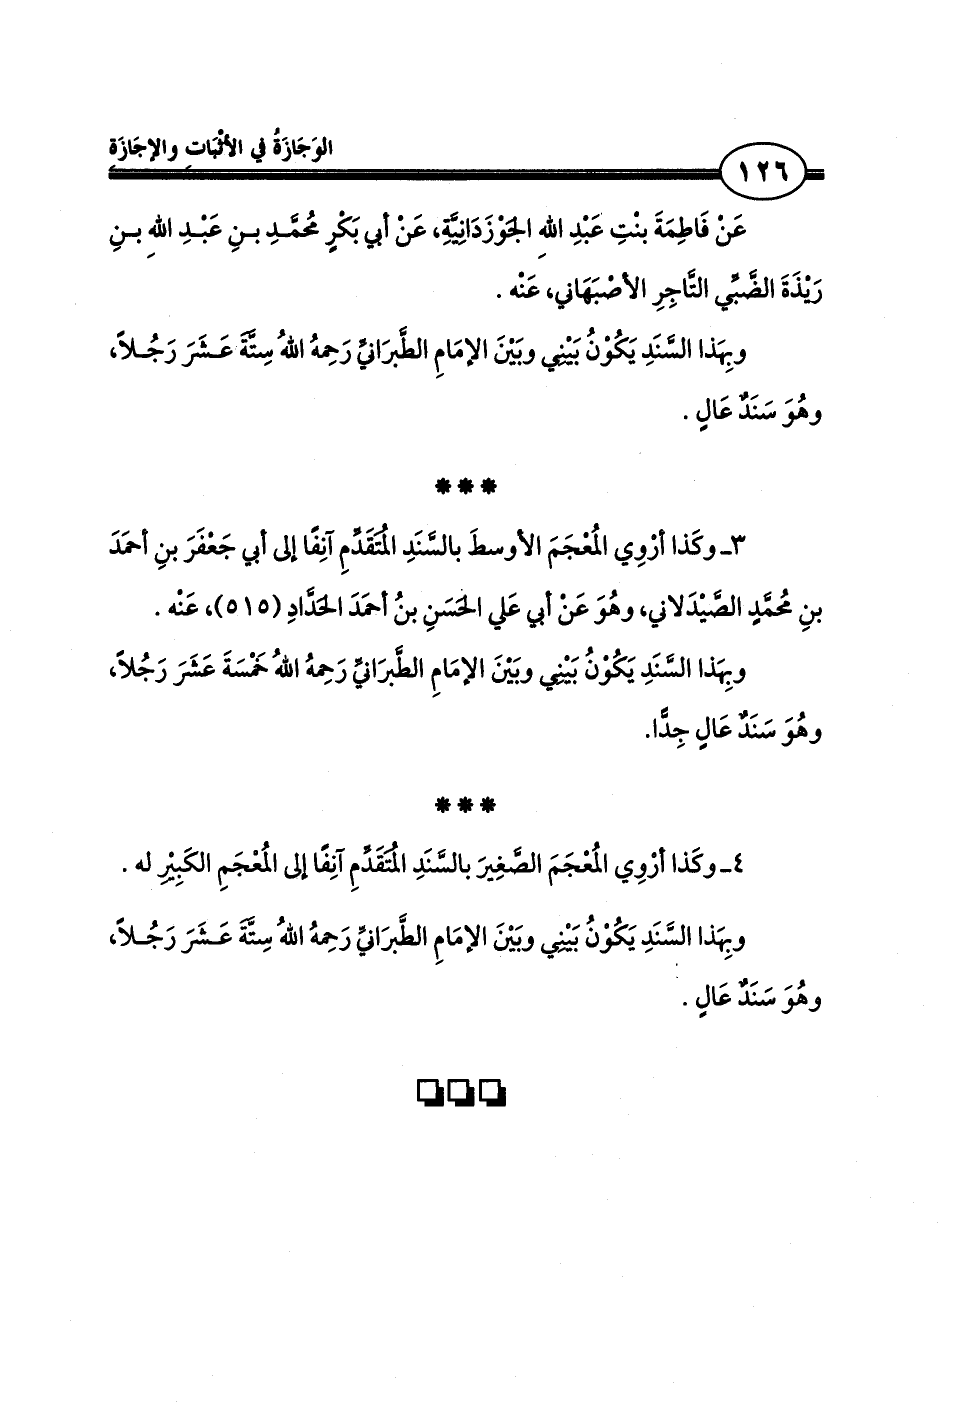 الوَجَازَةُ في الأثْبَاتِ والإجَازَةِ
١٢٦
عَنْ فَاطِمَةَ بنْتِ عَبْدِ اللهِ الجَوْزَدَانِيَّةِ، عَنْ أبي بَكْرٍ مُحمَّدِ بنِ عَبْدِ اللهِ بنِ
رَيْذَةَ الضَّبِّي التَّاجِرِ الأصْبَهَاني، عَنْه .
وبِهَذا السَّنَدِ يَكُوْنُ بَيْنِي وبَيْنَ الإمَامِ الطَّبرَانيِّ رَحِمهُ اللهُ سِتَّةَ عَشَرَ رَجُلاً،
وهُوَ سَنَدٌ عَالٍ .
***
٣ـ وكَذا أرْوِي المُعْجَمَ الأوسطَ بالسَّنَدِ المُتَقَدِّمِ آنِفًا إلى أبي جَعْفَرَ بنِ أحمَدَ
بنِ مُحمَّدٍ الصَّيْدَلاني، وهُوَ عَنْ أبي عَلي الحَسَنِ بنُ أحمَدَ الحَدَّادِ (٥١٥)، عَنْه .
وبِهَذا السَّنَدِ يَكُوْنُ بَيْنِي وبَيْنَ الإمَامِ الطَّبرَانيِّ رَحِمهُ اللهُ خَمْسَةَ عَشَرَ رَجُلاً،
وهُوَ سَنَدٌ عَالٍ جِدًّا.
***
٤ـ وكَذا أرْوِي المُعْجَمَ الصَّغِيرَ بالسَّنَدِ المُتَقَدِّمِ آنِفًا إلى المُعْجَمِ الكَبِيْرِ له .
وبِهَذا السَّنَدِ يَكُوْنُ بَيْنِي وبَيْنَ الإمَامِ الطَّبرَانيِّ رَحِمهُ اللهُ سِتَّةَ عَشَرَ رَجُلاً،
وهُوَ سَنَدٌ عَالٍ .